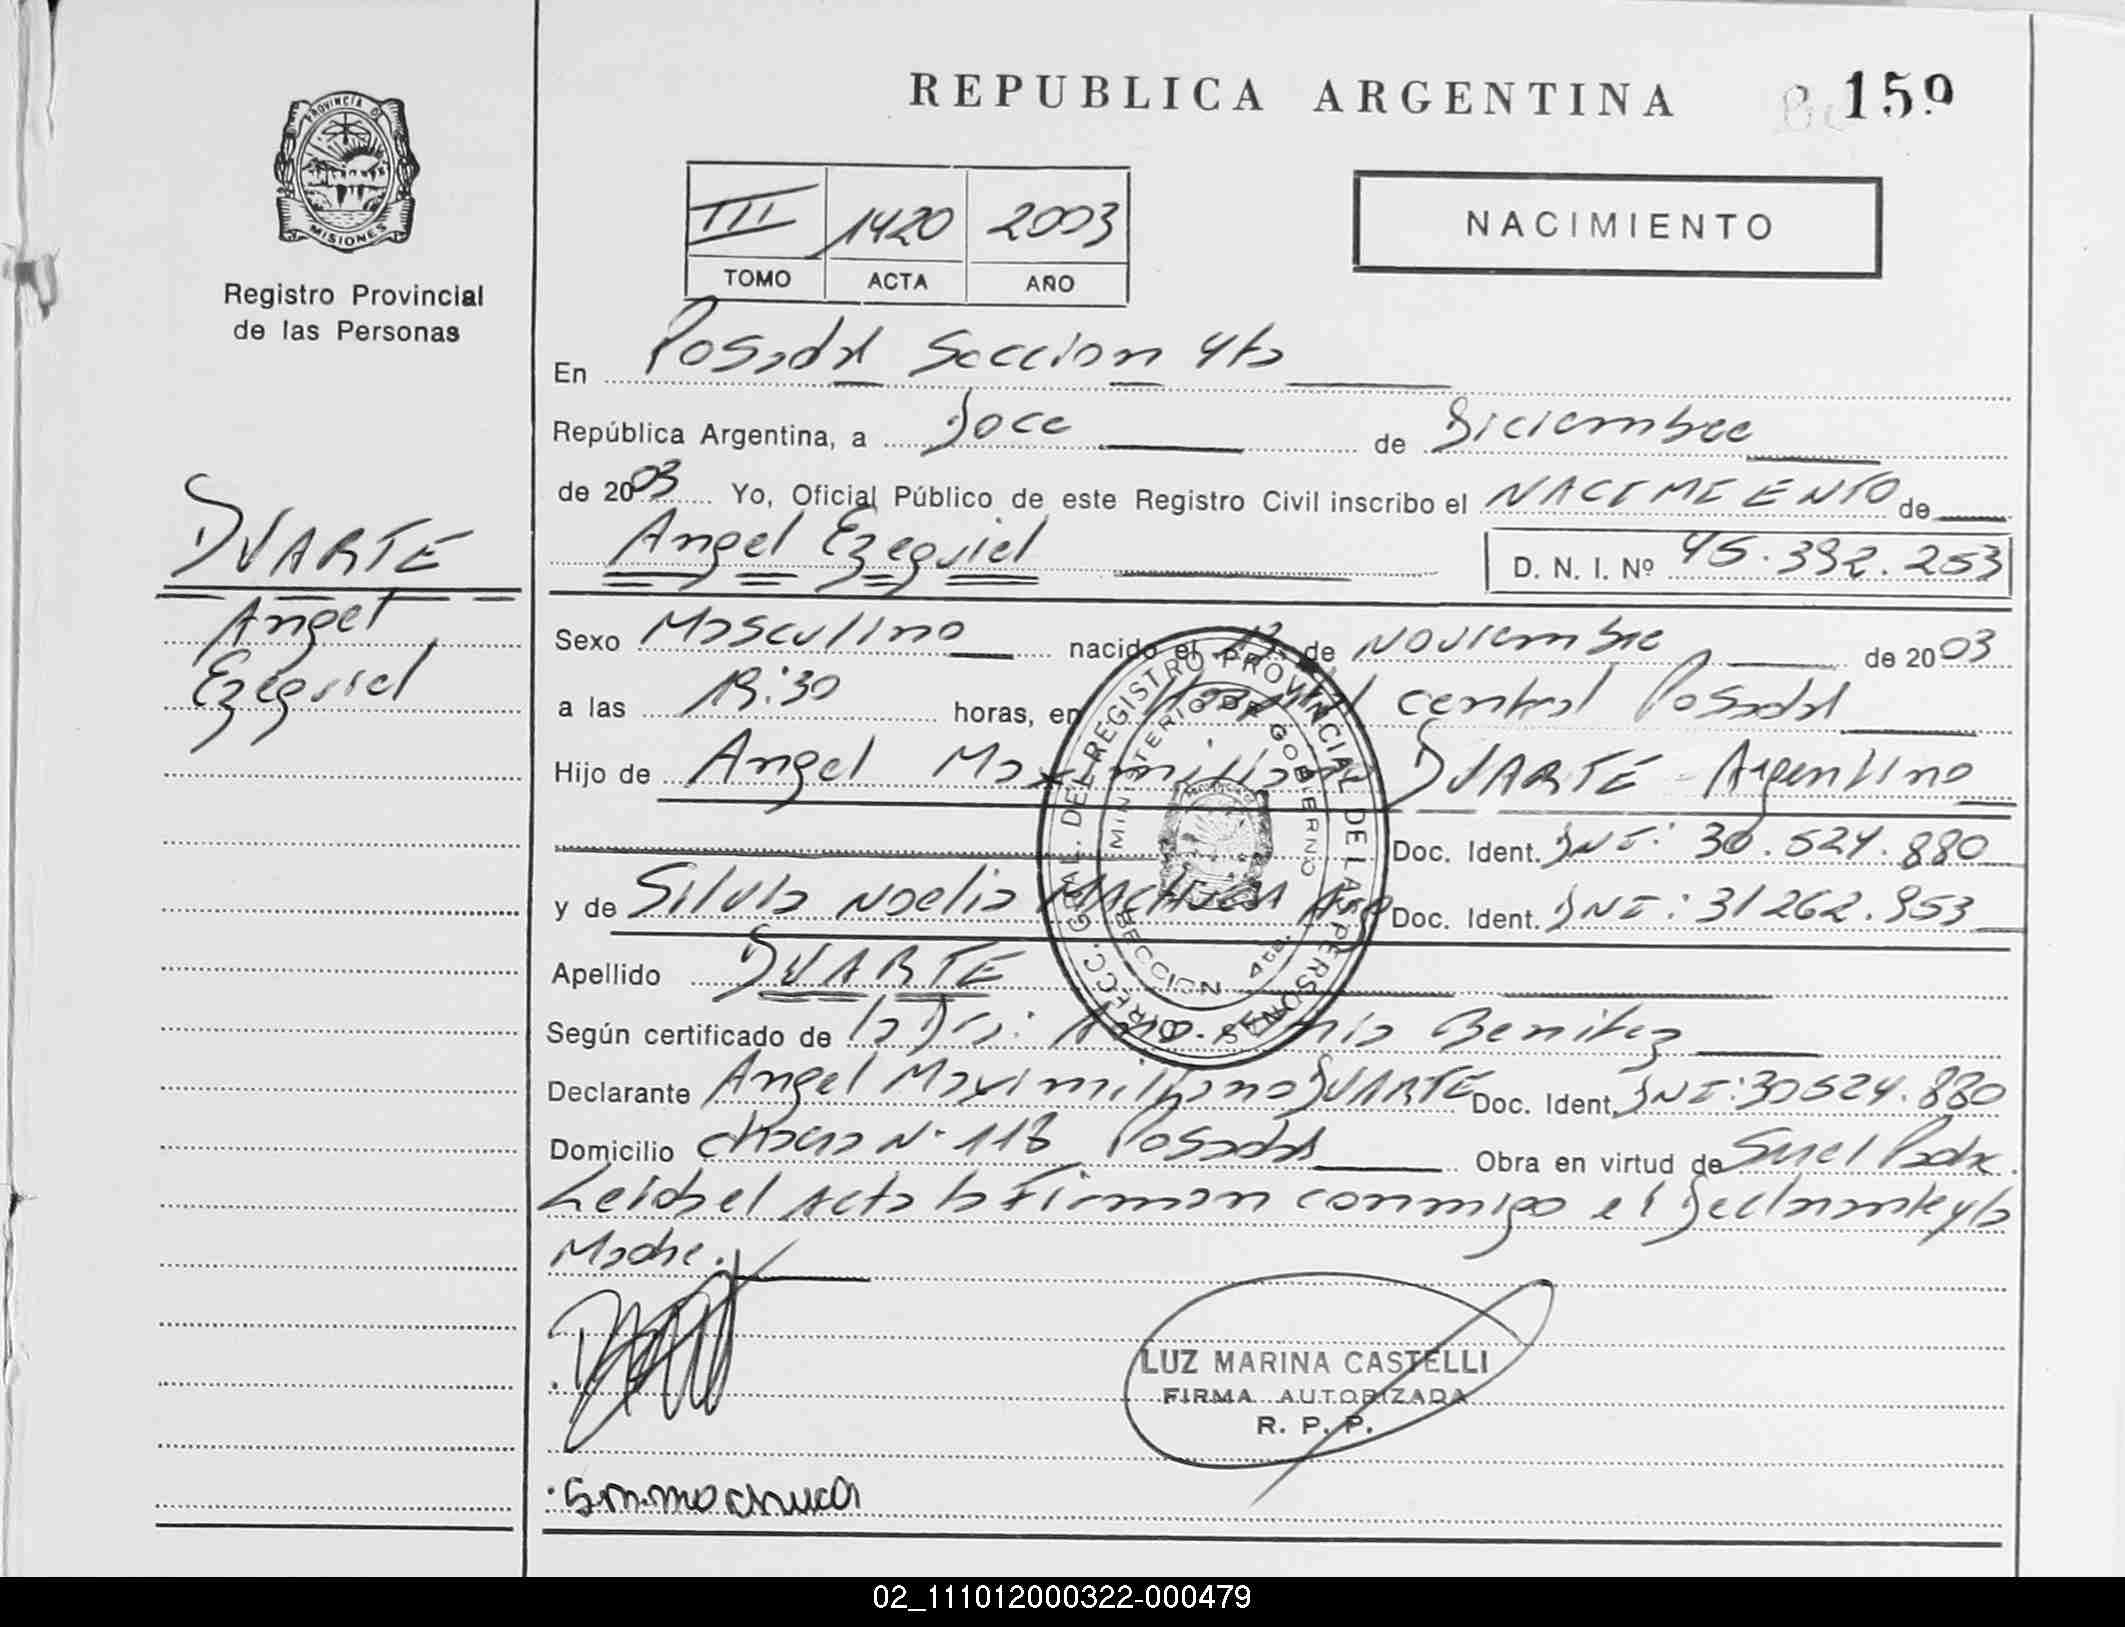 REPUBLICA ARGENTINA
159
PROVINCIA DE
MISIONES
Registro Provincial
de las Personas
III 1420 2003
TOMO ACTA AÑO
NACIMIENTO
En Posadas Seccion 4ta
República Argentina, a Doce de Diciembre
de 2003 Yo, Oficial Público de este Registro Civil inscribo el NACIMIENTO de
Angel Ezequiel D. N. I. Nº 45.392.253
DUARTE
Angel
Ezequiel
Sexo Masculino nacido el de Noviembre de 2003
a las 19:30 horas, en Hospital central Posadas
Hijo de Angel Maximiliano DUARTE - Argentino
Doc. Ident. DNI: 30.524.880
y de Silvia Noelia MACHUCA Arg Doc. Ident. DNI: 31262.953
Apellido DUARTE
Según certificado de la Dra: Benitez
Declarante Angel Maximiliano DUARTE Doc. Ident. DNI: 30524.880
Domicilio chacra N° 118 Posadas Obra en virtud de Ser el Padre
Leida el Acta la Firman conmigo el Declarante y la
Madre.
DIRECC. GRAL. DEL REGISTRO PROVINCIAL DE LAS PERSONAS
MINISTERIO DE GOBIERNO
SECCION 4ta.
LUZ MARINA CASTELLI
FIRMA AUTORIZADA
R. P. P.
S.n.machuca
02_111012000322-000479